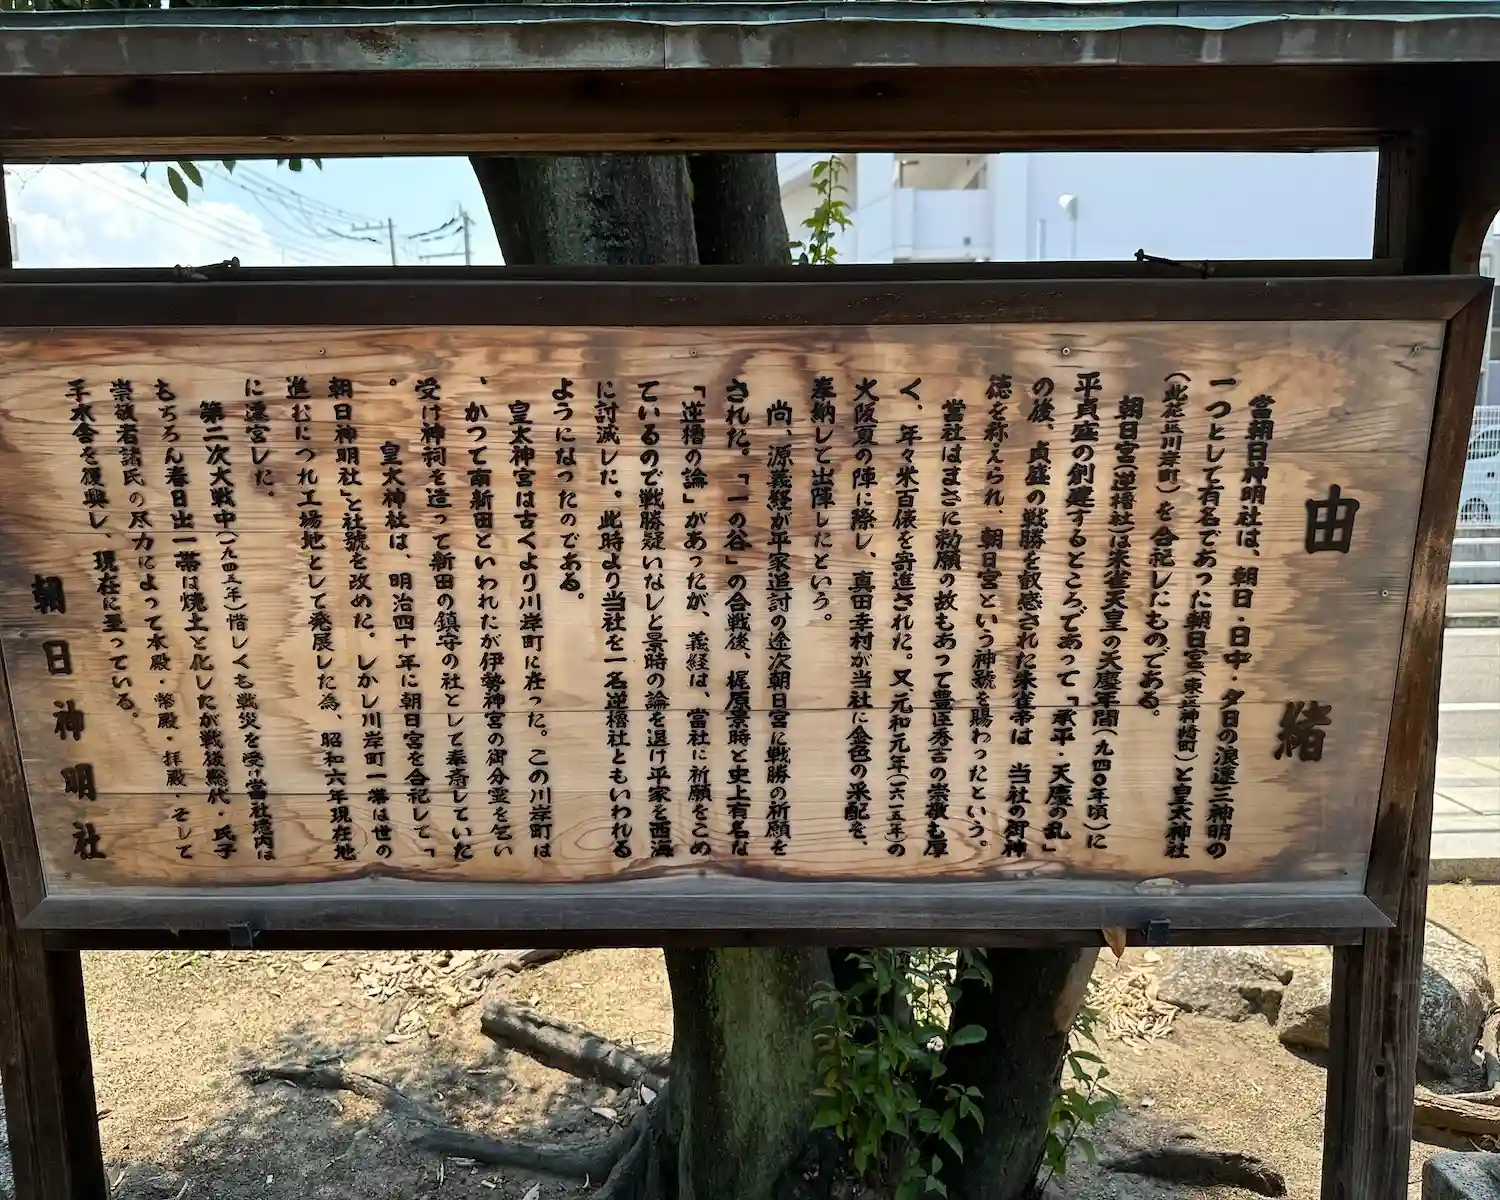 由緒
當朝日神明社は、朝日・日中・夕日の浪速三神明の
一つとして有名であった朝日宮(東区神崎町)と皇太神社
(此花区川岸町)を合祀したものである。
朝日宮(逆櫓社)は朱雀天皇の天慶年間(九四〇年頃)に
平貞盛の創建するところであって「承平・天慶の乱」
の後、貞盛の戦勝を叡感された朱雀帝は 当社の御神
徳を称えられ、朝日宮という神號を賜わったという。
當社はまさに勅願の故もあって豊臣秀吉の崇敬も厚
く、年々米百俵を寄進された。又、元和元年(一六一五年)の
大阪夏の陣に際し、真田幸村が当社に金色の采配を、
奉納して出陣したという。
尚、源義経が平家追討の途次朝日宮に戦勝の祈願を
された。「一の谷」の合戦後、梶原景時と史上有名な
「逆櫓の論」があったが、義経は、當社に祈願をこめ
ているので戦勝疑いなしと景時の論を退け平家を西海
に討滅した。此時より当社を一名逆櫓社ともいわれる
ようになったのである。
皇太神宮は古くより川岸町に在った。この川岸町は
、かつて南新田といわれたが伊勢神宮の御分霊を乞い
受け神祠を造って新田の鎮守の社として奉斎していた
。 皇太神社は、明治四十年に朝日宮を合祀して「
朝日神明社」と社號を改めた。しかし川岸町一帯は世の
進むにつれ工場地として発展した為、昭和六年現在地
に遷宮した。
第二次大戦中(一九四五年)惜しくも戦災を受け當社境内は
もちろん春日出一帯は焼土と化したが戦後熊代・氏子
崇敬者諸氏の尽力によって本殿・幣殿・拝殿・そして
手水舎を復興し、現在に至っている。
朝日神明社